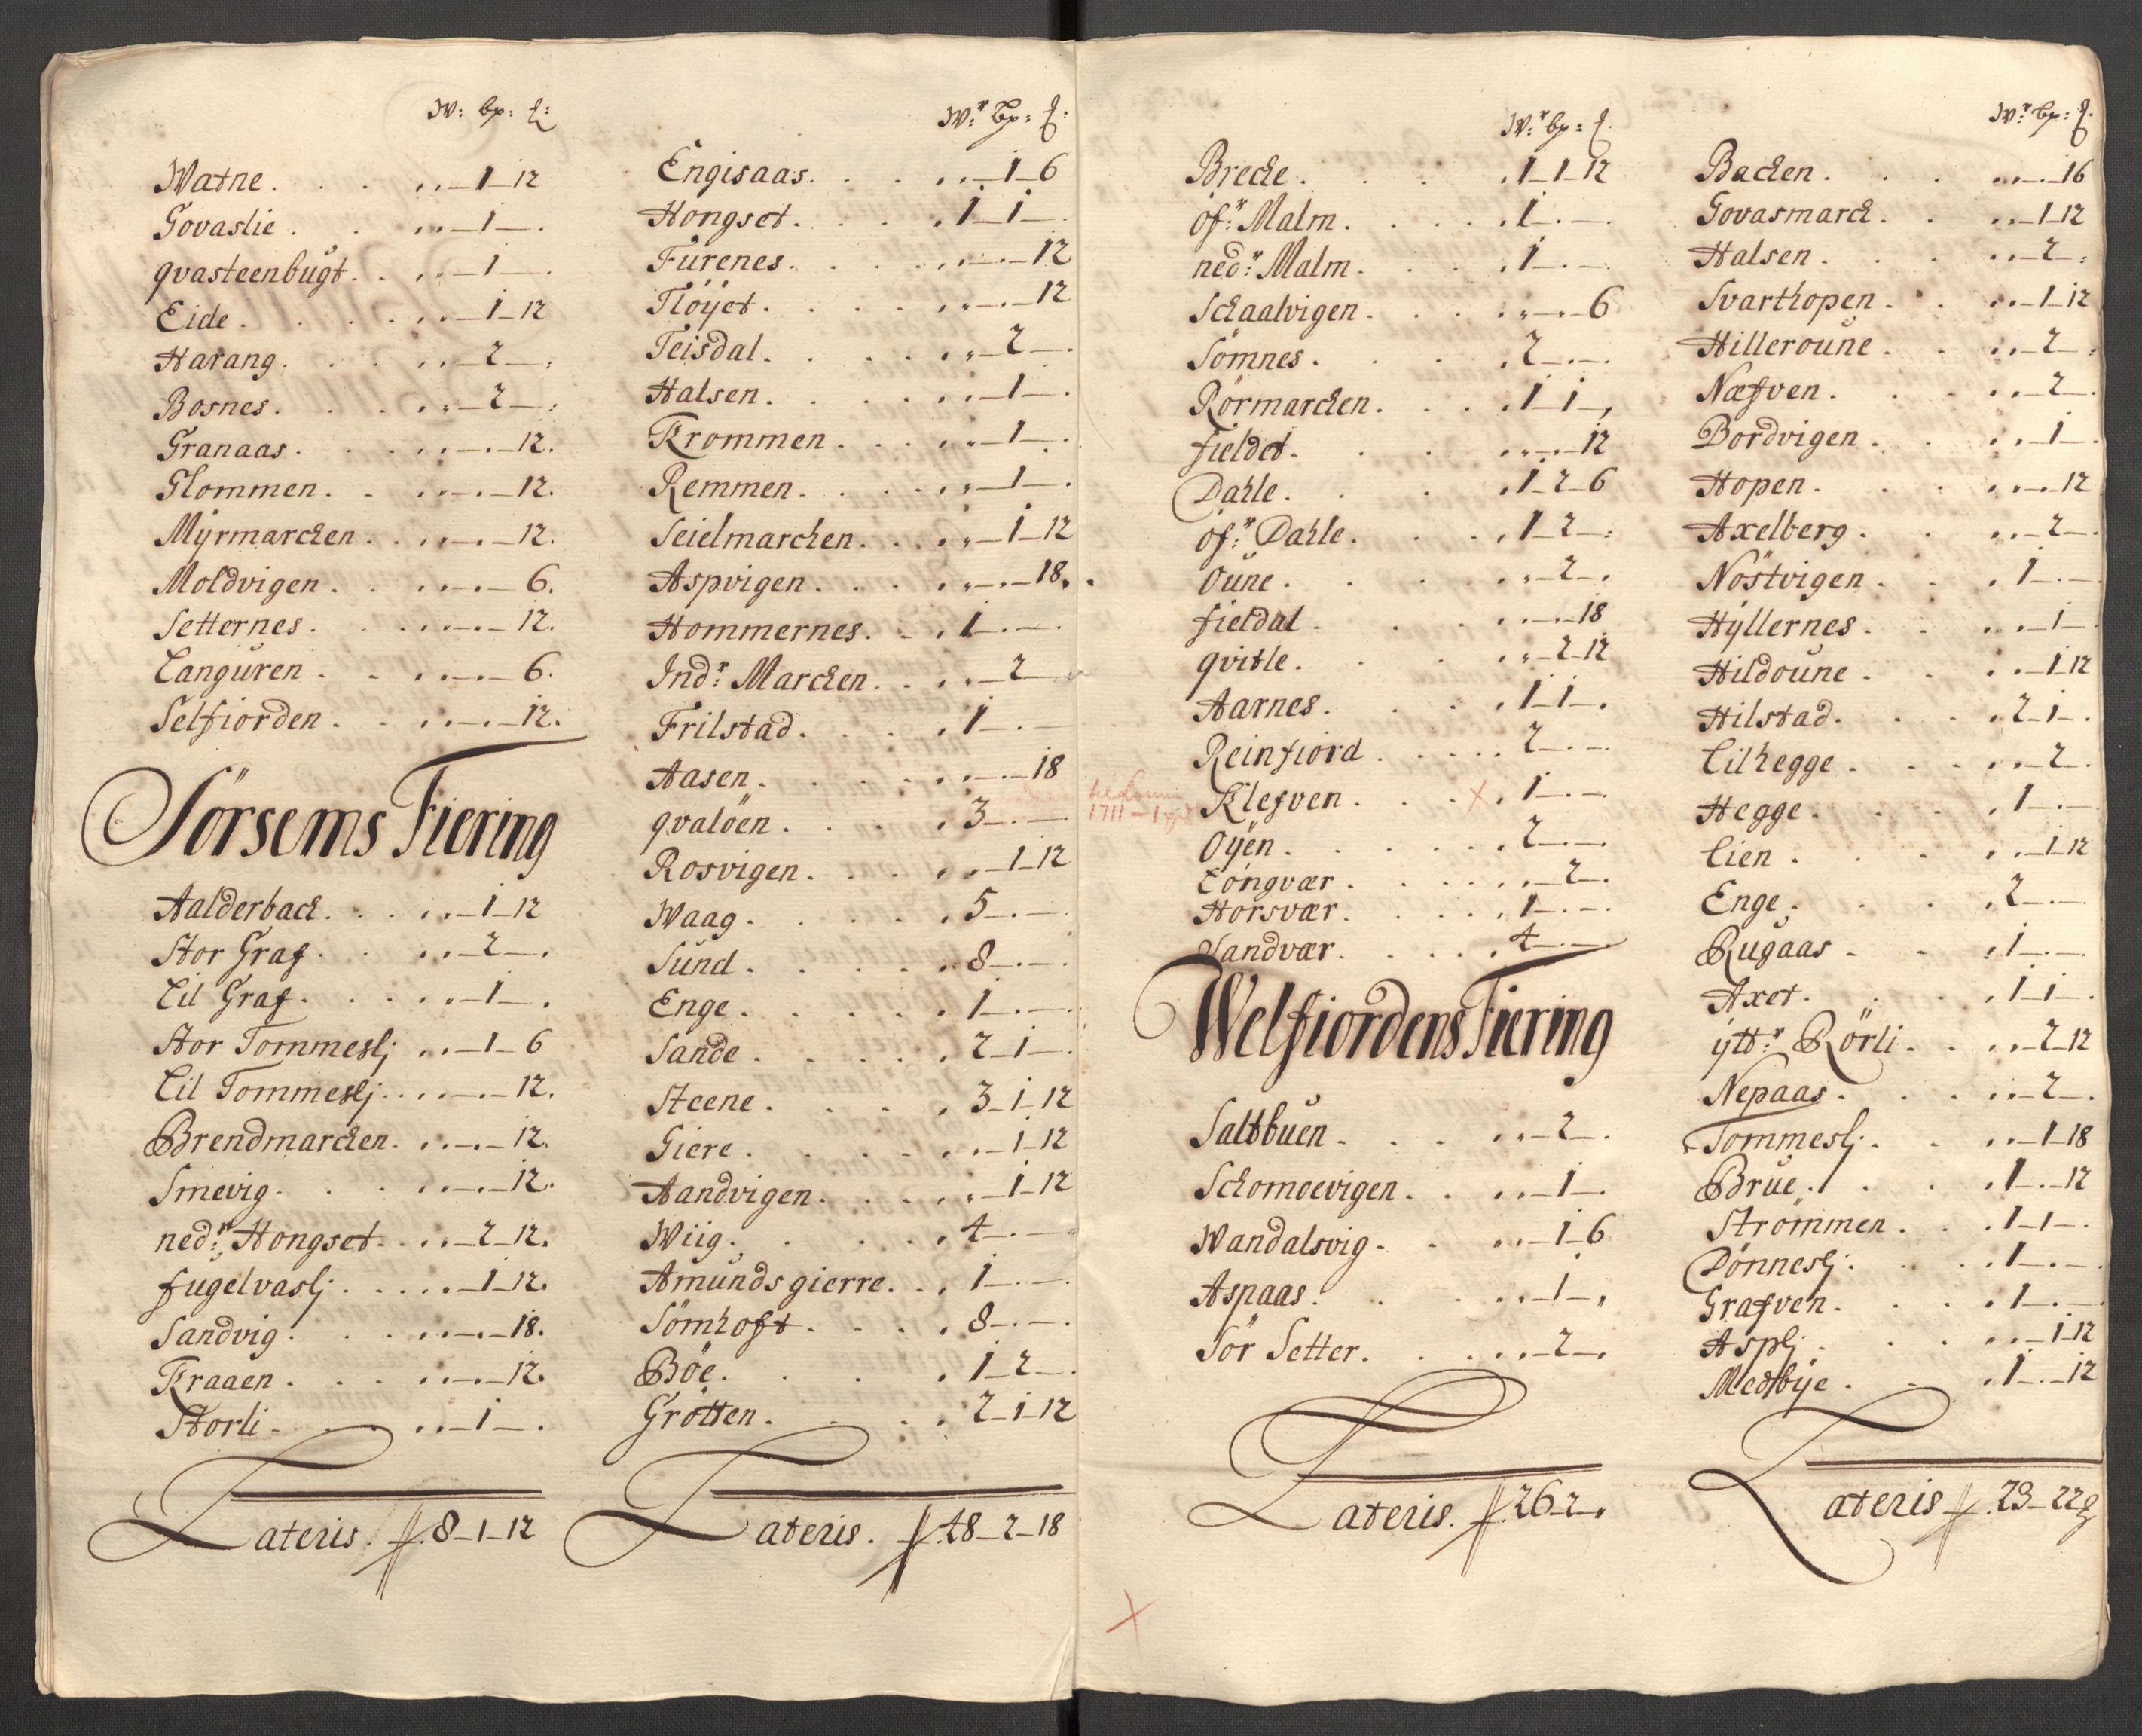 W: bp: ℔:
Watne . . . . . – 1 – 12
Govaslie . . . . – 1 – .
qvasteenbugt . . . – 1 – .
Eide . . . . . – 1 – 12
Harang . . . . – 2 – :
Bosnes . . . . – 2 – :
Granaas . . . . – . – 12.
Glommen . . . . – . – 12.
Myrmarchen . . . – . – 12.
Moldvigen . . . – . – 6.
Setternes . . . . – . – 12.
Languren . . . . – . – 6.
Selfiorden . . . – . – 12.
Sörsems Fiering
Aalderbach . . . – 1 – 12
Stor Graf . . . . – 2 – .
Lil Graf . . . . – 1 – .
Stor Tommeslj . . – 1 – 6
Lil Tommeslj . . . – . – 12.
Brendmarchen . . . – . – 12.
Smevig . . . . – . – 12.
ned:r Hongset . . . – 2 – 12.
fugelvaslj . . . . – 1 – 12.
Sandvig . . . . – . – 18.
Kraaen . . . . – . – 12.
Storli . . . . – 1 – .
Lateris . 8 – 1 – 12
W:r bp: ℔:
Engisaas . . . . – 1 – 6
Hongset . . . . 1 – 1 – .
Furenes . . . . – . – 12
Fløyet . . . . – . – 12
Teisdal . . . . – 2 – .
Halsen . . . . – 1 – .
Krommen . . . . – 1 – .
Remmen . . . . – 1 – .
Seielmarchen . . . – 1 – 12
Aspvigen . . . . – . – 18.
Hommernes . . . 1 – . – .
Ind:r Marchen . . . – 2 –
Frilstad . . . . 1 – . –
Aasen . . . . – . – 18
qvalöen . . . . 3 – . –
Rosvigen . . . . – 1 – 12
Waag . . . . 5 – . –
Sund . . . . 8 – . –
Enge . . . . 1 – . –
Sande . . . . 2 – 1 – .
Steene . . . . 3 – 1 – 12
Giere . . . . – 1 – 12
Aandvigen . . . . – 1 – 12
Wiig . . . . 4 – . –
Amunds gierre . . . 1 – . – .
Sömhoft . . . . 8 – . – .
Böe . . . . 1 – 2 – .
Grötten . . . . 2 – 1 – 12
Lateris . 48 – 2 – 18
W:r bp: ℔.
Breche . . . . 1 – 1 – 12
öf:r Malm . . . . 1 – . –
ned:r Malm . . . . 1 – . –
Schaalvigen . . . . – . – 6
Sömnes . . . . 2 – . – .
Rörmarchen . . . . 1 – 1 – ,
fieldet . . . . – . – 12
Dahle . . . . 1 – 2 – 6
öf:r Dahle . . . . 1 – 2 – :
Oune . . . . – 2 – .
fieldal . . . . – . – 18
qvitle . . . . – 2 – 12
Aarnes . . . . 1 – 1 – .
Reinfiord . . . . 2 – . – .
1711 – 1
Klefven . . . × . 1 – . – .
Oÿen . . . . 2 – . – .
Löngvær . . . . – 2 – .
Horsvær . . . . 1 – . – .
Sandvær . . . . 4 – . – .
Welfiordens Fiering
Saltbuen . . . . – 2 – .
Schomoevigen . . . – 1 – .
Wandalsvig . . . – 1 – 6
Aspaas . . . . – 1 – ,
Sör Setter . . . . – 2 – .
Lateris . 26 – 2 – .
W:r bp: ℔.
Bachen . . . . – . – 16
Govasmarch . . . – 1 – 12
Halsen . . . . – 2 – :
Svarthopen . . . – 1 – 12
Hilleroune . . . – 2 – :
Næfven . . . . – 2 – .
Bordvigen . . . . – 1 – .
Hopen . . . . – . – 12
Axelberg . . . . – 2 – .
Nöstvigen . . . . 1 – . –
Hÿllernes . . . . – 1 –
Hildoune . . . . – 1 – 12
Hilstad . . . . 2 – 1 – .
Lilhegge . . . . – 2 – .
Hegge . . . . 1 – . –
Lien . . . . – 1 – 12
Enge . . . . 2 – . –
Rugaas . . . . 1 – . –
Axet . . . . 1 – 1 – .
ÿtt:r Rörli . . . – 2 – 12
Nepaas . . . . – 2 – .
Tommeslj . . . – 1 – 18
Brue . . . . 1 – . – 12
Strömmen . . . 1 – 1 – .
Dönneslj . . . . 1 – . – .
Grafven . . . . 1 – . –
Asplj . . . . – 1 – 12
Medbÿe . . . . 1 – . – 12
Lateris . 23 – 22